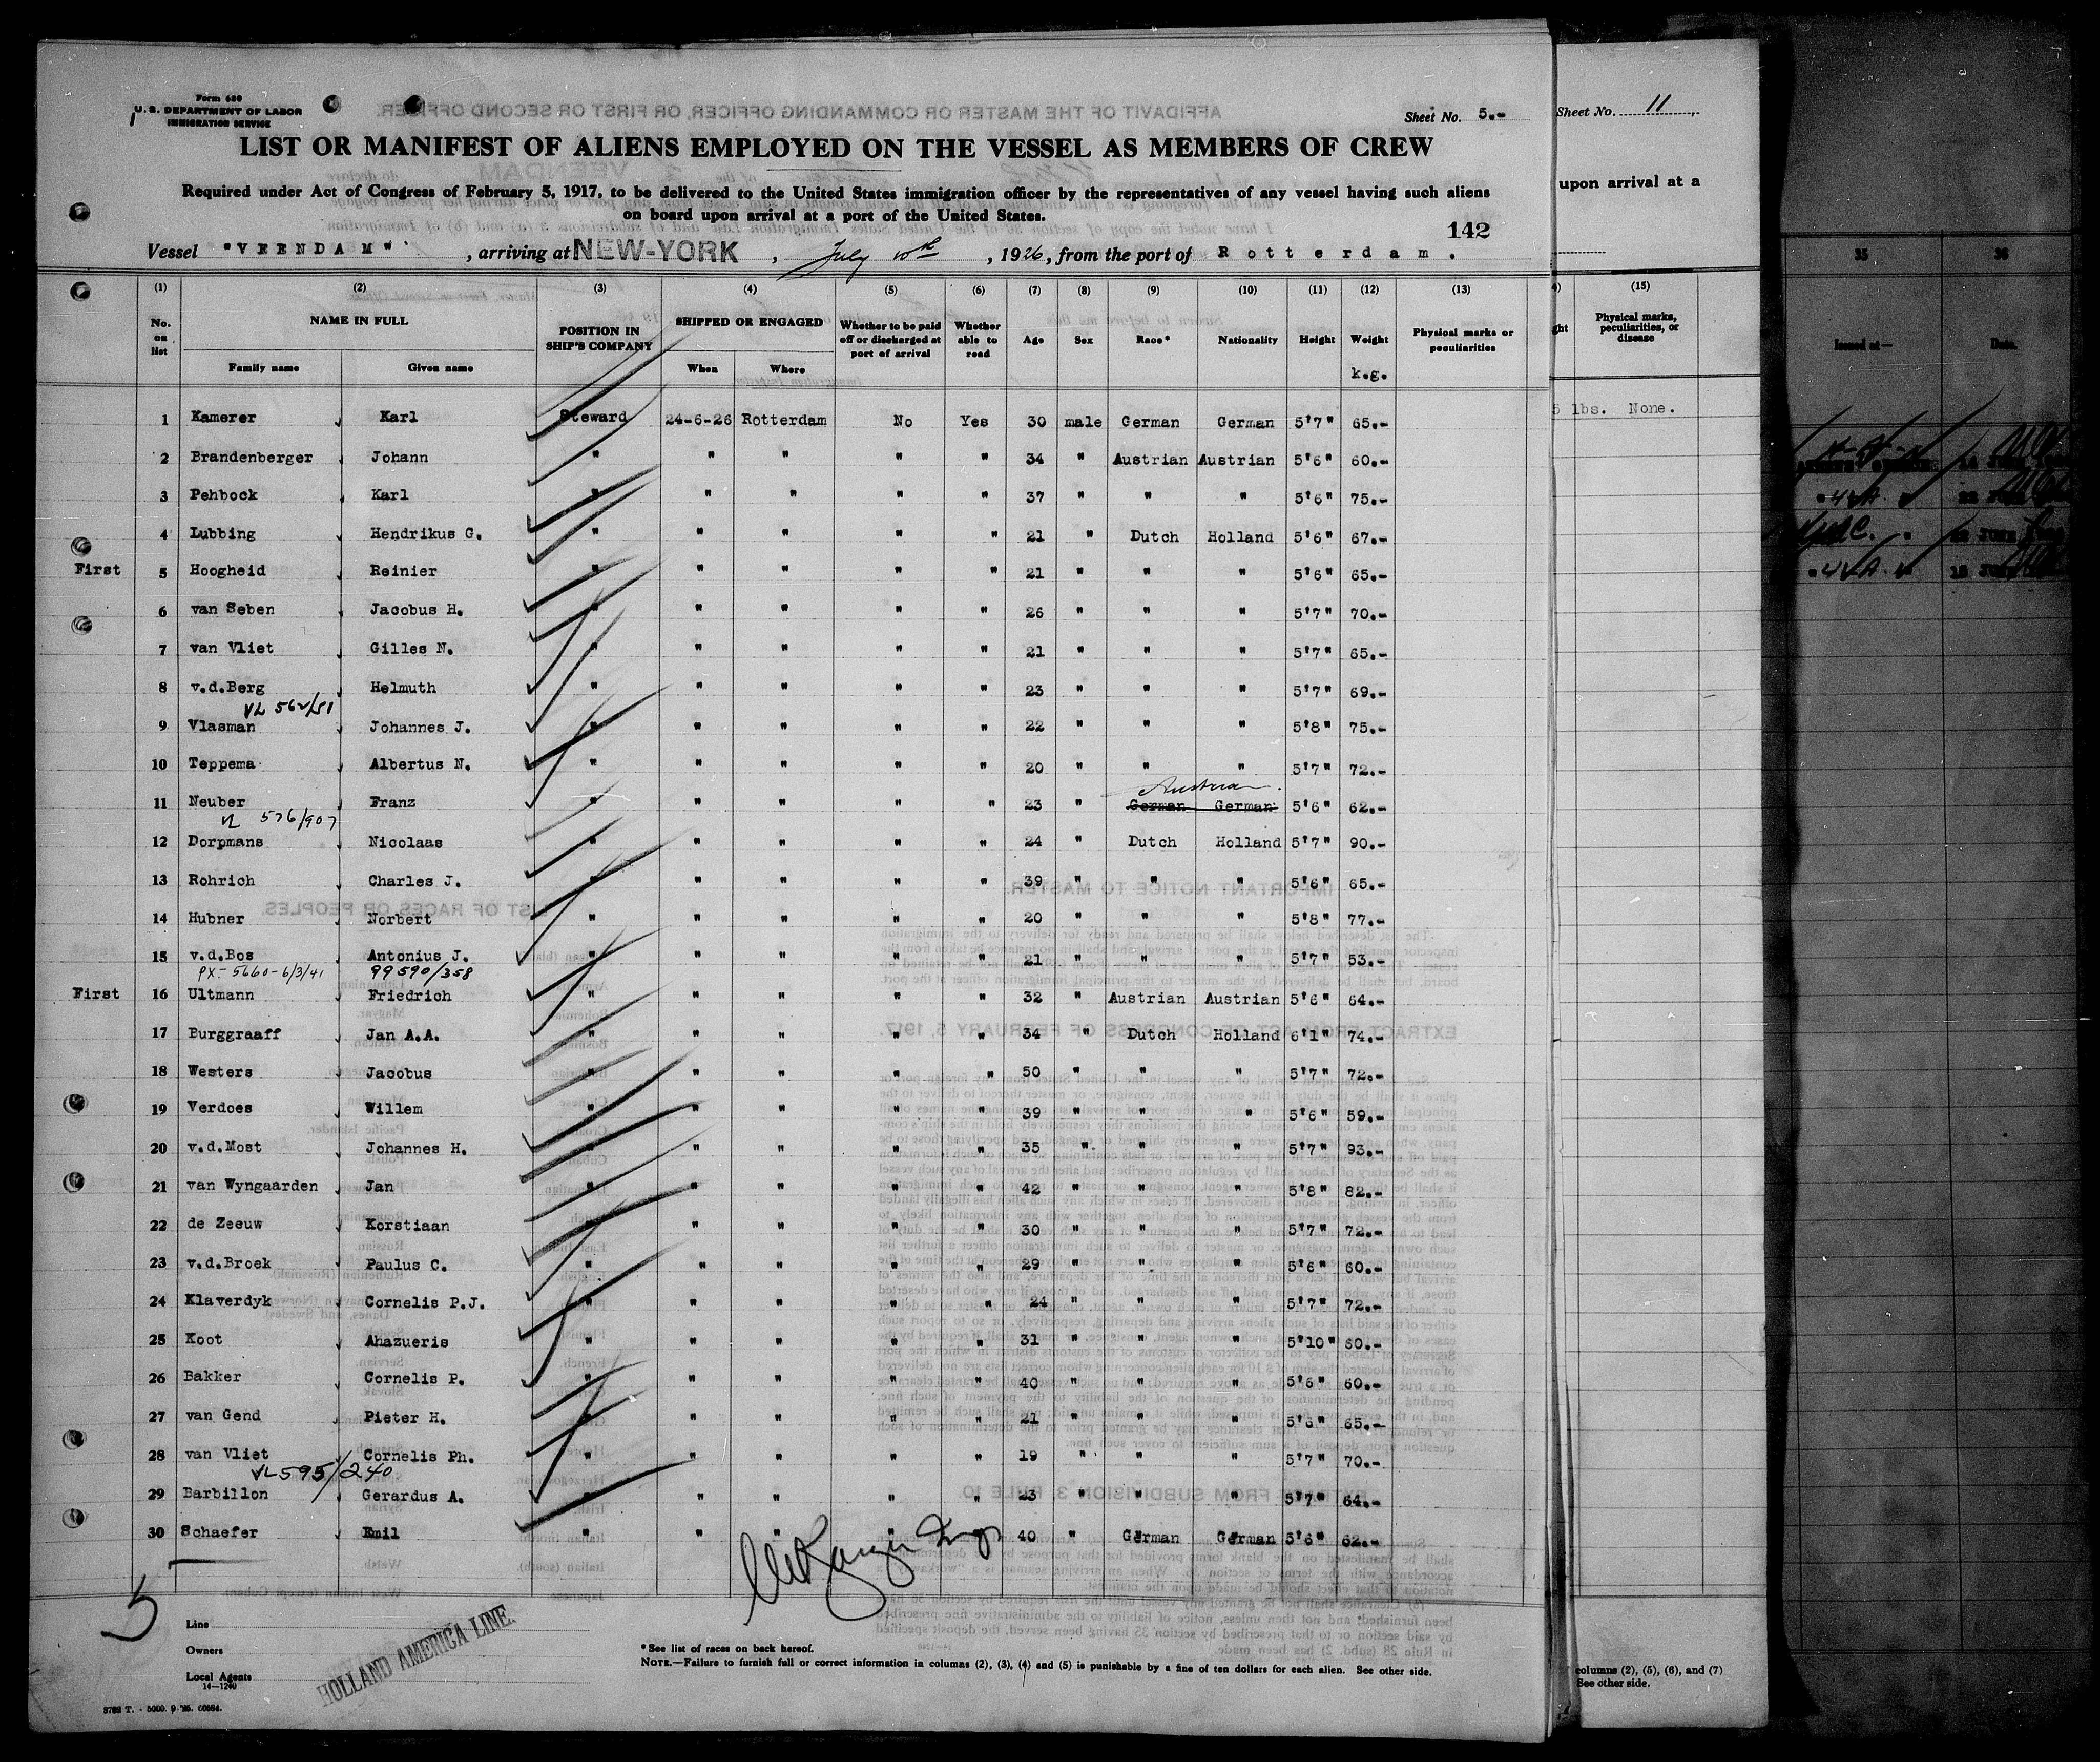 Form 680
U. S. DEPARTMENT OF LABOR
IMMIGRATION SERVICE
Sheet No. 5.-
LIST OR MANIFEST OF ALIENS EMPLOYED ON THE VESSEL AS MEMBERS OF CREW
Required under Act of Congress of February 5, 1917, to be delivered to the United States immigration officer by the representatives of any vessel having such aliens
on board upon arrival at a port of the United States.
142
Vessel "VEENDAM", arriving at NEW-YORK, July 10th, 1926, from the port of Rotterdam.
(1) (2) (3) (4) (5) (6) (7) (8) (9) (10) (11) (12) (13)
No. on list NAME IN FULL POSITION IN SHIP'S COMPANY SHIPPED OR ENGAGED Whether to be paid off or discharged at port of arrival Whether able to read Age Sex Race* Nationality Height Weight Physical marks or peculiarities
Family name Given name When Where k.g.
1 Kamerer Karl Steward 24-6-26 Rotterdam No Yes 30 male German German 5'7" 65.-
2 Brandenberger Johann " " " " " 34 " Austrian Austrian 5'6" 60.-
3 Pehbock Karl " " " " " 37 " " " 5'6" 75.-
4 Lubbing Hendrikus G. " " " " " 21 " Dutch Holland 5'6" 67.-
First 5 Hoogheid Reinier " " " " " 21 " " " 5'6" 65.-
6 van Seben Jacobus H. " " " " " 26 " " " 5'7" 70.-
7 van Vliet Gilles N. " " " " " 21 " " " 5'7" 65.-
8 v.d.Berg Helmuth " " " " " 23 " " " 5'7" 69.-
9 Vlasman Johannes J. " " " " " 22 " " " 5'8" 75.-
10 Teppema Albertus N. " " " " " 20 " " " 5'7" 72.-
Austrian
11 Neuber Franz " " " " " 23 " German German 5'6" 62.-
576/907
12 Dorpmans Nicolaas " " " " " 24 " Dutch Holland 5'7" 90.-
13 Rohrich Charles J. " " " " " 39 " " " 5'6" 65.-
14 Hubner Norbert " " " " " 20 " " " 5'8" 77.-
15 v.d.Bos Antonius J. " " " " " 21 " " " 5'7" 53.-
PX-5660-6/3/41 99590/358
First 16 Ultmann Friedrich " " " " " 32 " Austrian Austrian 5'6" 64.-
17 Burggraaff Jan A.A. " " " " " 34 " Dutch Holland 6'1" 74.-
18 Westers Jacobus " " " " " 50 " " " 5'7" 72.-
19 Verdoes Willem " " " " " 39 " " " 5'6" 59.-
20 v.d.Most Johannes H. " " " " " 35 " " " 5'7" 93.-
21 van Wyngaarden Jan " " " " " 42 " " " 5'8" 82.-
22 de Zeeuw Korstiaan " " " " " 30 " " " 5'7" 72.-
23 v.d.Broek Paulus C. " " " " " 29 " " " 5'6" 60.-
24 Klaverdyk Cornelis P.J. " " " " " 24 " " " 5'7" 72.-
25 Koot Ahazueris " " " " " 31 " " " 5'10" 60.-
26 Bakker Cornelis P. " " " " " 40 " " " 5'6" 60.-
27 van Gend Pieter H. " " " " " 21 " " " 5'6" 65.-
28 van Vliet Cornelis Ph. " " " " " 19 " " " 5'7" 70.-
VL 595/240
29 Barbillon Gerardus A. " " " " " 23 " " " 5'7" 64.-
30 Schaefer Emil " " " " " 40 " German German 5'6" 62.-
5
Line
Owners
Local Agents
14—1240
HOLLAND AMERICA LINE.
*See list of races on back hereof.
NOTE.—Failure to furnish full or correct information in columns (2), (3), (4) and (5) is punishable by a fine of ten dollars for each alien. See other side.
Sheet No. 11
upon arrival at a
(15)
Physical marks, peculiarities, or disease
lbs. None.
columns (2), (5), (6), and (7)
See other side.
35 36
Issued at— Date.